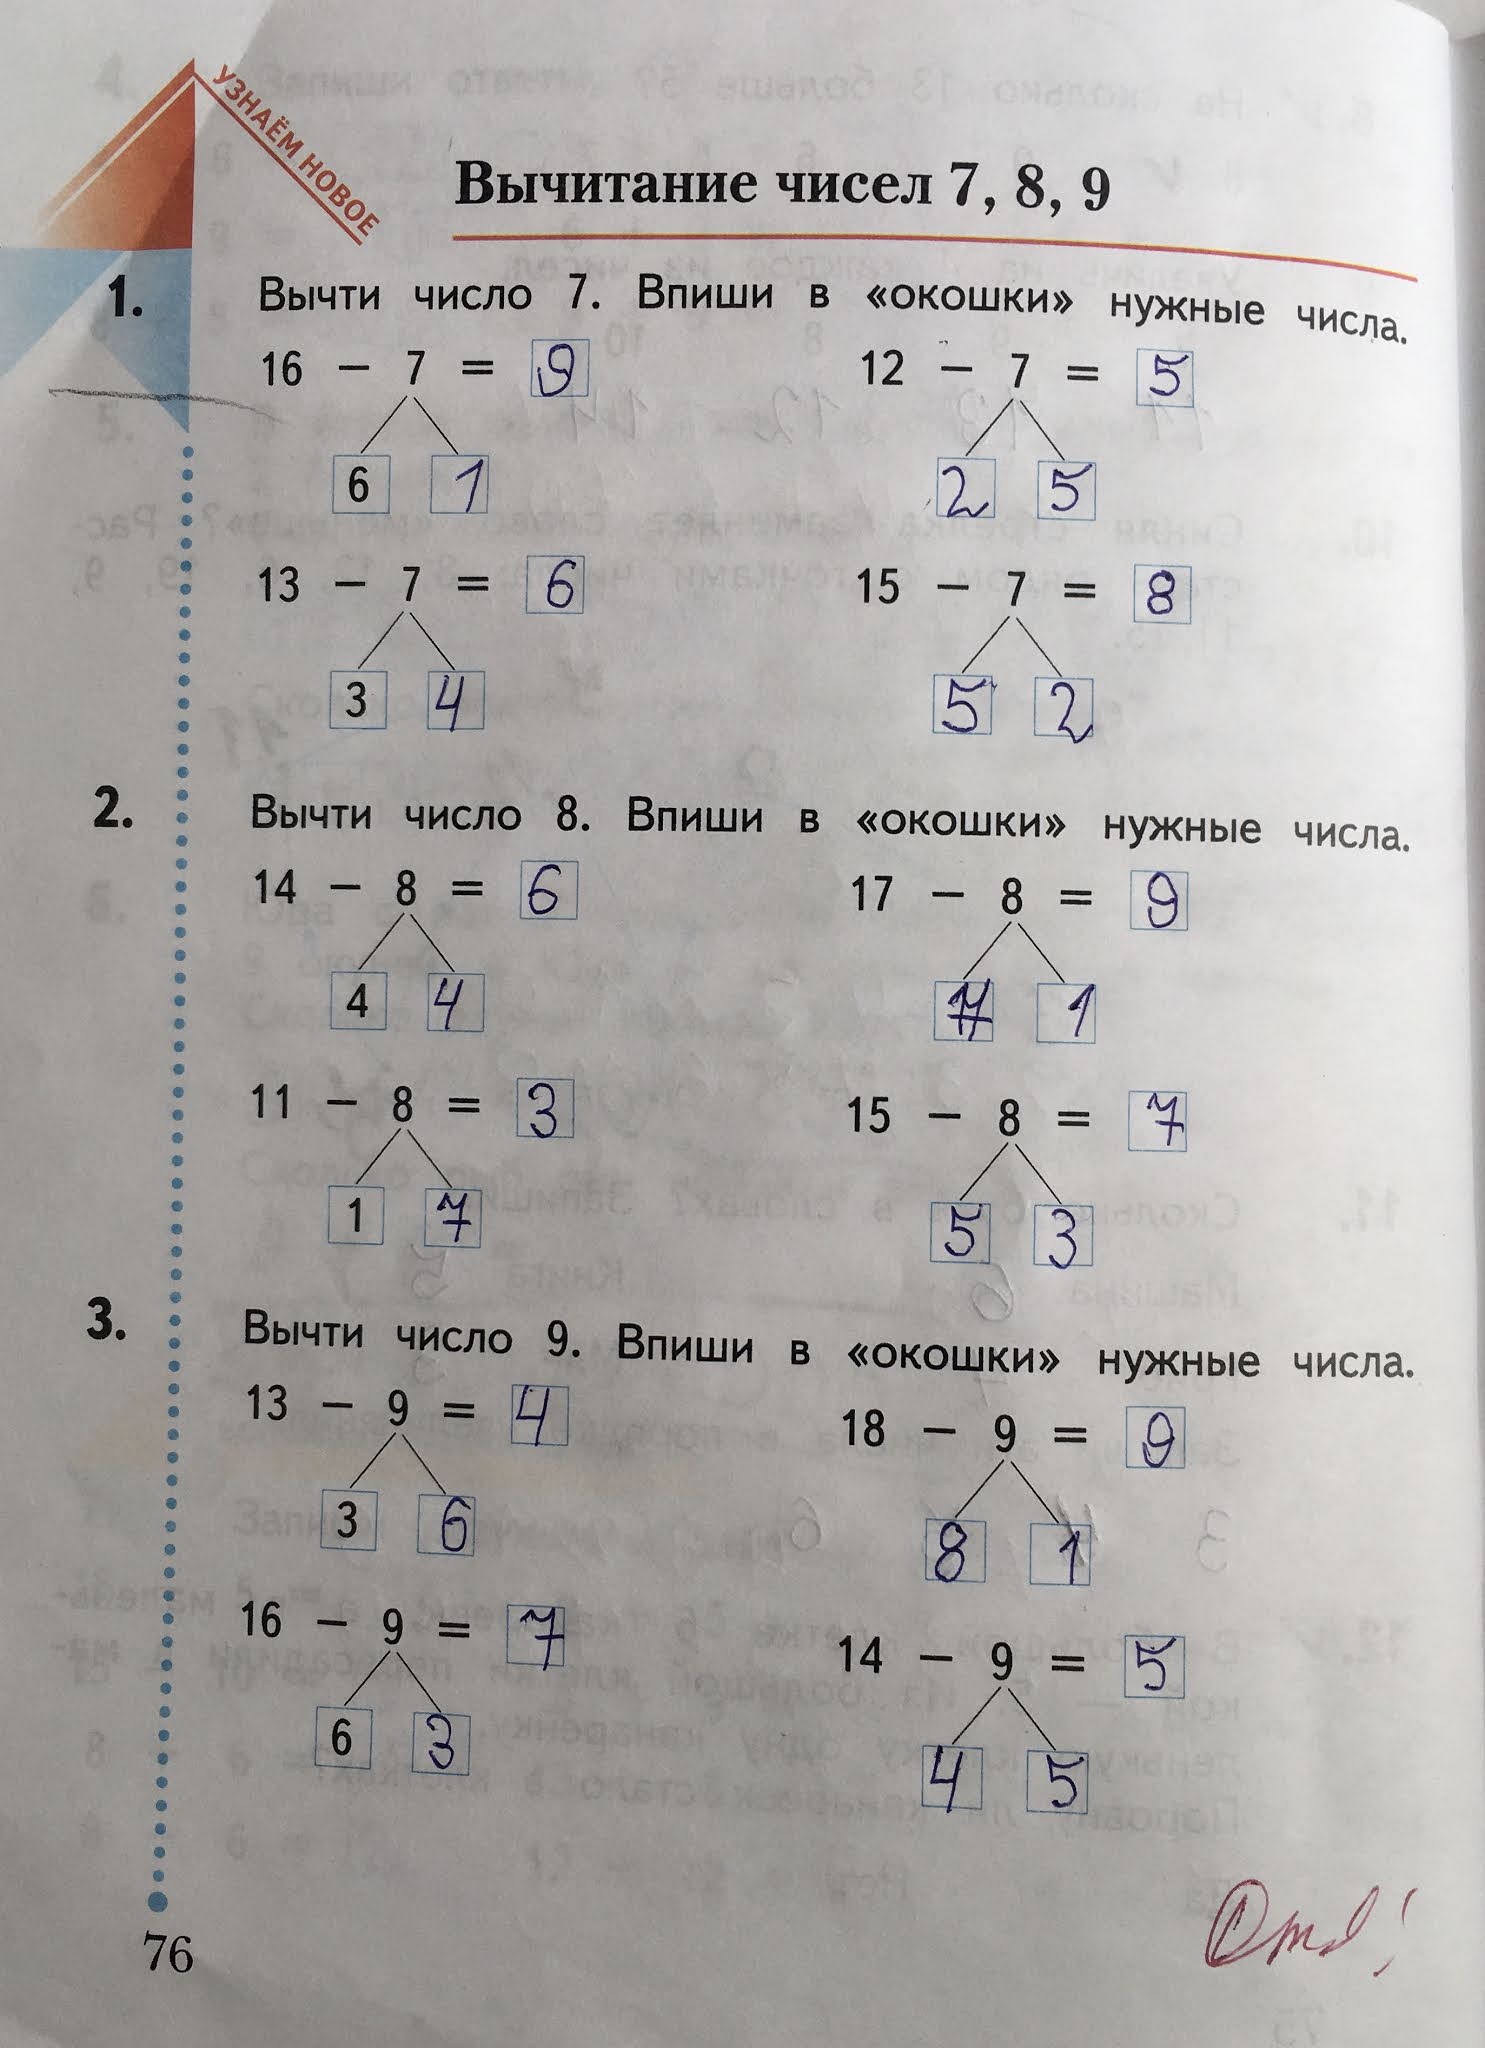 УЗНАЁМ НОВОЕ
Вычитание чисел 7, 8, 9
1. Вычти число 7. Впиши в «окошки» нужные числа.
16 − 7 = 9 12 − 7 = 5
6 1 2 5
13 − 7 = 6 15 − 7 = 8
3 4 5 2
2. Вычти число 8. Впиши в «окошки» нужные числа.
14 − 8 = 6 17 − 8 = 9
4 4 7 1
11 − 8 = 3 15 − 8 = 7
1 7 5 3
3. Вычти число 9. Впиши в «окошки» нужные числа.
13 − 9 = 4 18 − 9 = 9
3 6 8 1
16 − 9 = 7 14 − 9 = 5
6 3 4 5
76